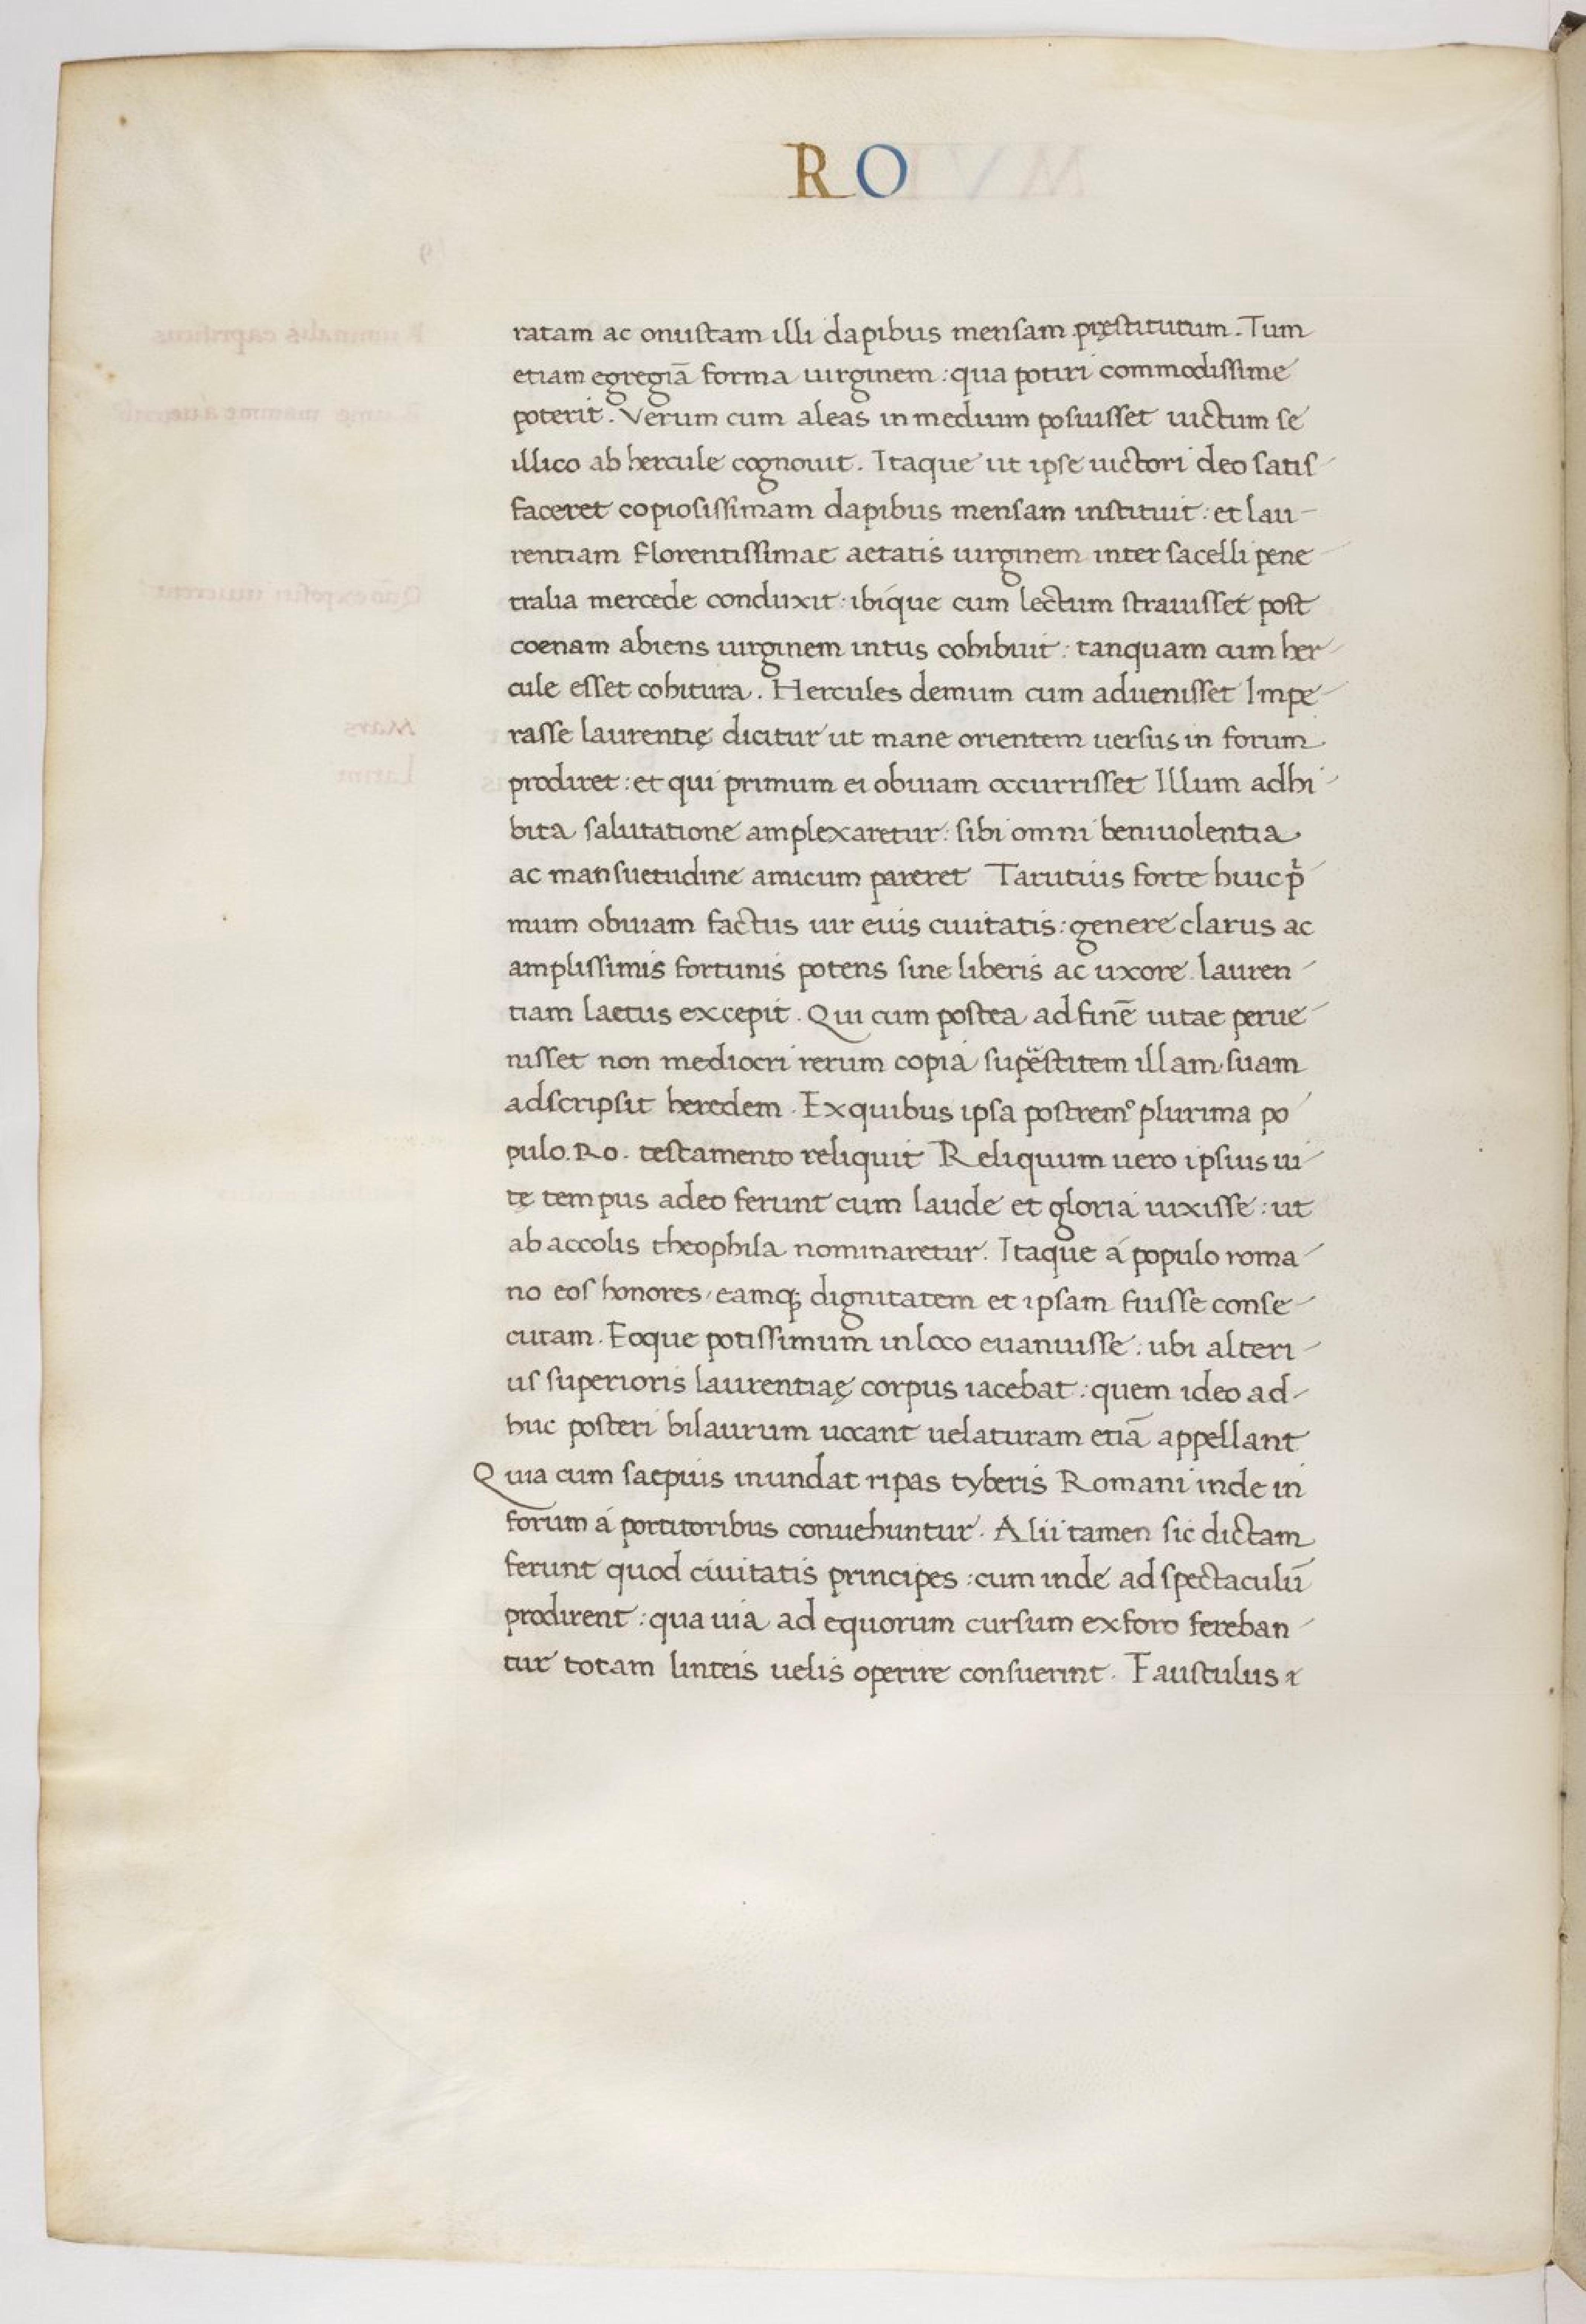 RO
ratam ac onustam illi dapibus mensam pręstitutum. Tum
etiam egregiā forma uirginem: qua potiri commodissime
poterit. Verum cum aleas in medium posuisset uictum se
illico ab hercule cognouit. Itaque ut ipse uictori deo satis
faceret copiosissimam dapibus mensam instituit: et lau-
rentiam florentissimae aetatis uirginem inter sacelli pene-
tralia mercede conduxit: ibique cum lectum strauisset post
coenam abiens uirginem intus cohibuit: tanquam cum her-
cule esset cohitura. Hercules demum cum aduenisset Impe-
rasse laurentię dicitur ut mane orientem uersus in forum
prodiret: et qui primum ei obuiam occurrisset Illum adhi-
bita salutatione amplexaretur: sibi omni beniuolentia
ac mansuetudine amicum pareret Tarutius forte huic pͥ
mum obuiam factus uir euis ciuitatis: genere clarus ac
amplissimis fortunis potens sine liberis ac uxore lauren-
tiam laetus excepit. Qui cum postea ad finē uitae perue-
nisset non mediocri rerum copia supestitem illam suam
adscripsit heredem. Ex quibus ipsa postremº plurima po
pulo. Ro. testamento reliquit Reliquum uero ipsius ui-
tę tempus adeo ferunt cum laude et gloria uixisse: ut
ab accolis theophila nominaretur. Itaque á populo roma-
no eos honores, eamq; dignitatem et ipsam fuisse conse-
cutam. Eoque potissimum in loco euanuisse: ubi alteri-
us superioris laurentiaę corpus iacebat: quem ideo ad-
huc posteri bilaurum uocant uelaturam etiā appellant
Quia cum saepius inundat ripas tyberis Romani inde in
forum á portitoribus conuehuntur. Alii tamen sic dictam
ferunt quod ciuitatis principes: cum inde ad spectaculū
prodirent: qua uia ad equorum cursum ex foro fereban-
tur totam linteis uelis operire consuerint. Faustulus &